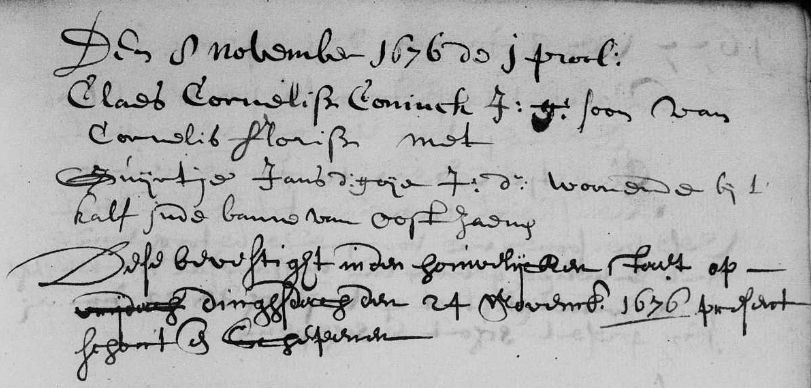 Den 8 november 1676 de j procl:
Claes Cornelisz Coninck J: g: soon van
Cornelis Florisz met
Trijntje Jans J: d: woonende bij t
kalf inde banne van Oost Zaenen
Dese bevestight inden houwelijcken staet op
dinghsdach den 24 Novemb: 1676 present
schout en Schepenen